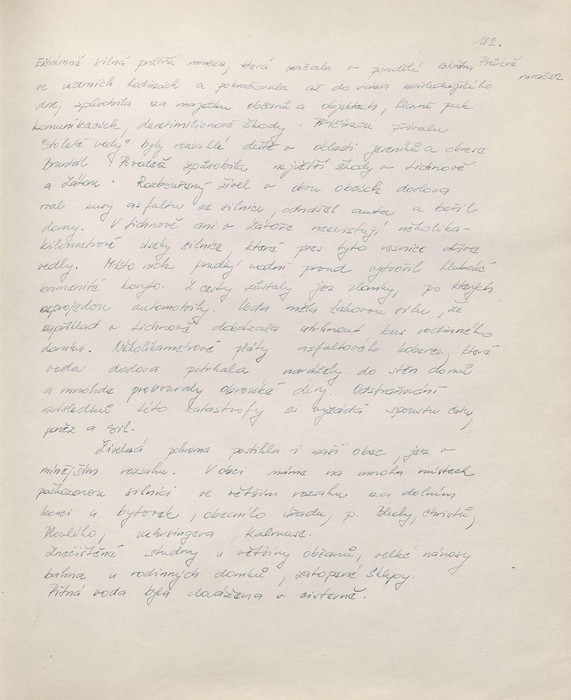 182.
Extrémně silná průtrž mračen, která začala v pondělí Průtrž
mračen
ve večerních hodinách a pokračovala až do rána následujícího
dne, způsobila na majetku občanů a objektech, hlavně pak
komunikacích, desetimilionové škody. Příčinou přívalu
"stoleté vody" byly rozsáhlé deště v oblasti Jeseníků a okresu
Bruntál. Povodeň způsobila největší škody v Lichnově
a Zátoru. Rozbouřený živel v obou obcích doslova
rval kusy asfaltu ze silnice, odnášel auta a bořil
domy. V Lichnově ani v Zátoře neexistují několika-
kilometrové úseky silnice, které přes tyto vesnice dříve
vedly. Místo nich prudký vodní proud vytvořil hluboké
kamenité koryto. Z cesty zůstaly jen zlomky, po kterých
neprojedou automobily. Voda měla takovou sílu, že
například v Lichnově dokázala utrhnout kus rodinného
domku. Několikametrové pláty asfaltového koberce, které
voda doslova potrhala narážely do stěn domů
a mnohde probouraly obrovské díry. Odstraňování
následků této katastrofy si vyžádá spoustu času,
peněz a sil.
Živelná pohroma postihla i naši obec, jen v
menším rozsahu. V obci máme na mnoha místech
poškozenou silnici ve větším rozsahu na dolním
konci u bytovek, obecního úřadu, p. Blechy, Christů,
Dlouhého, Kalmuse.
Znečištěné studny u většiny občanů, velké nánosy
bahna u rodinných domků, zatopené sklepy.
Pitná voda byla dovážena v cisterně.